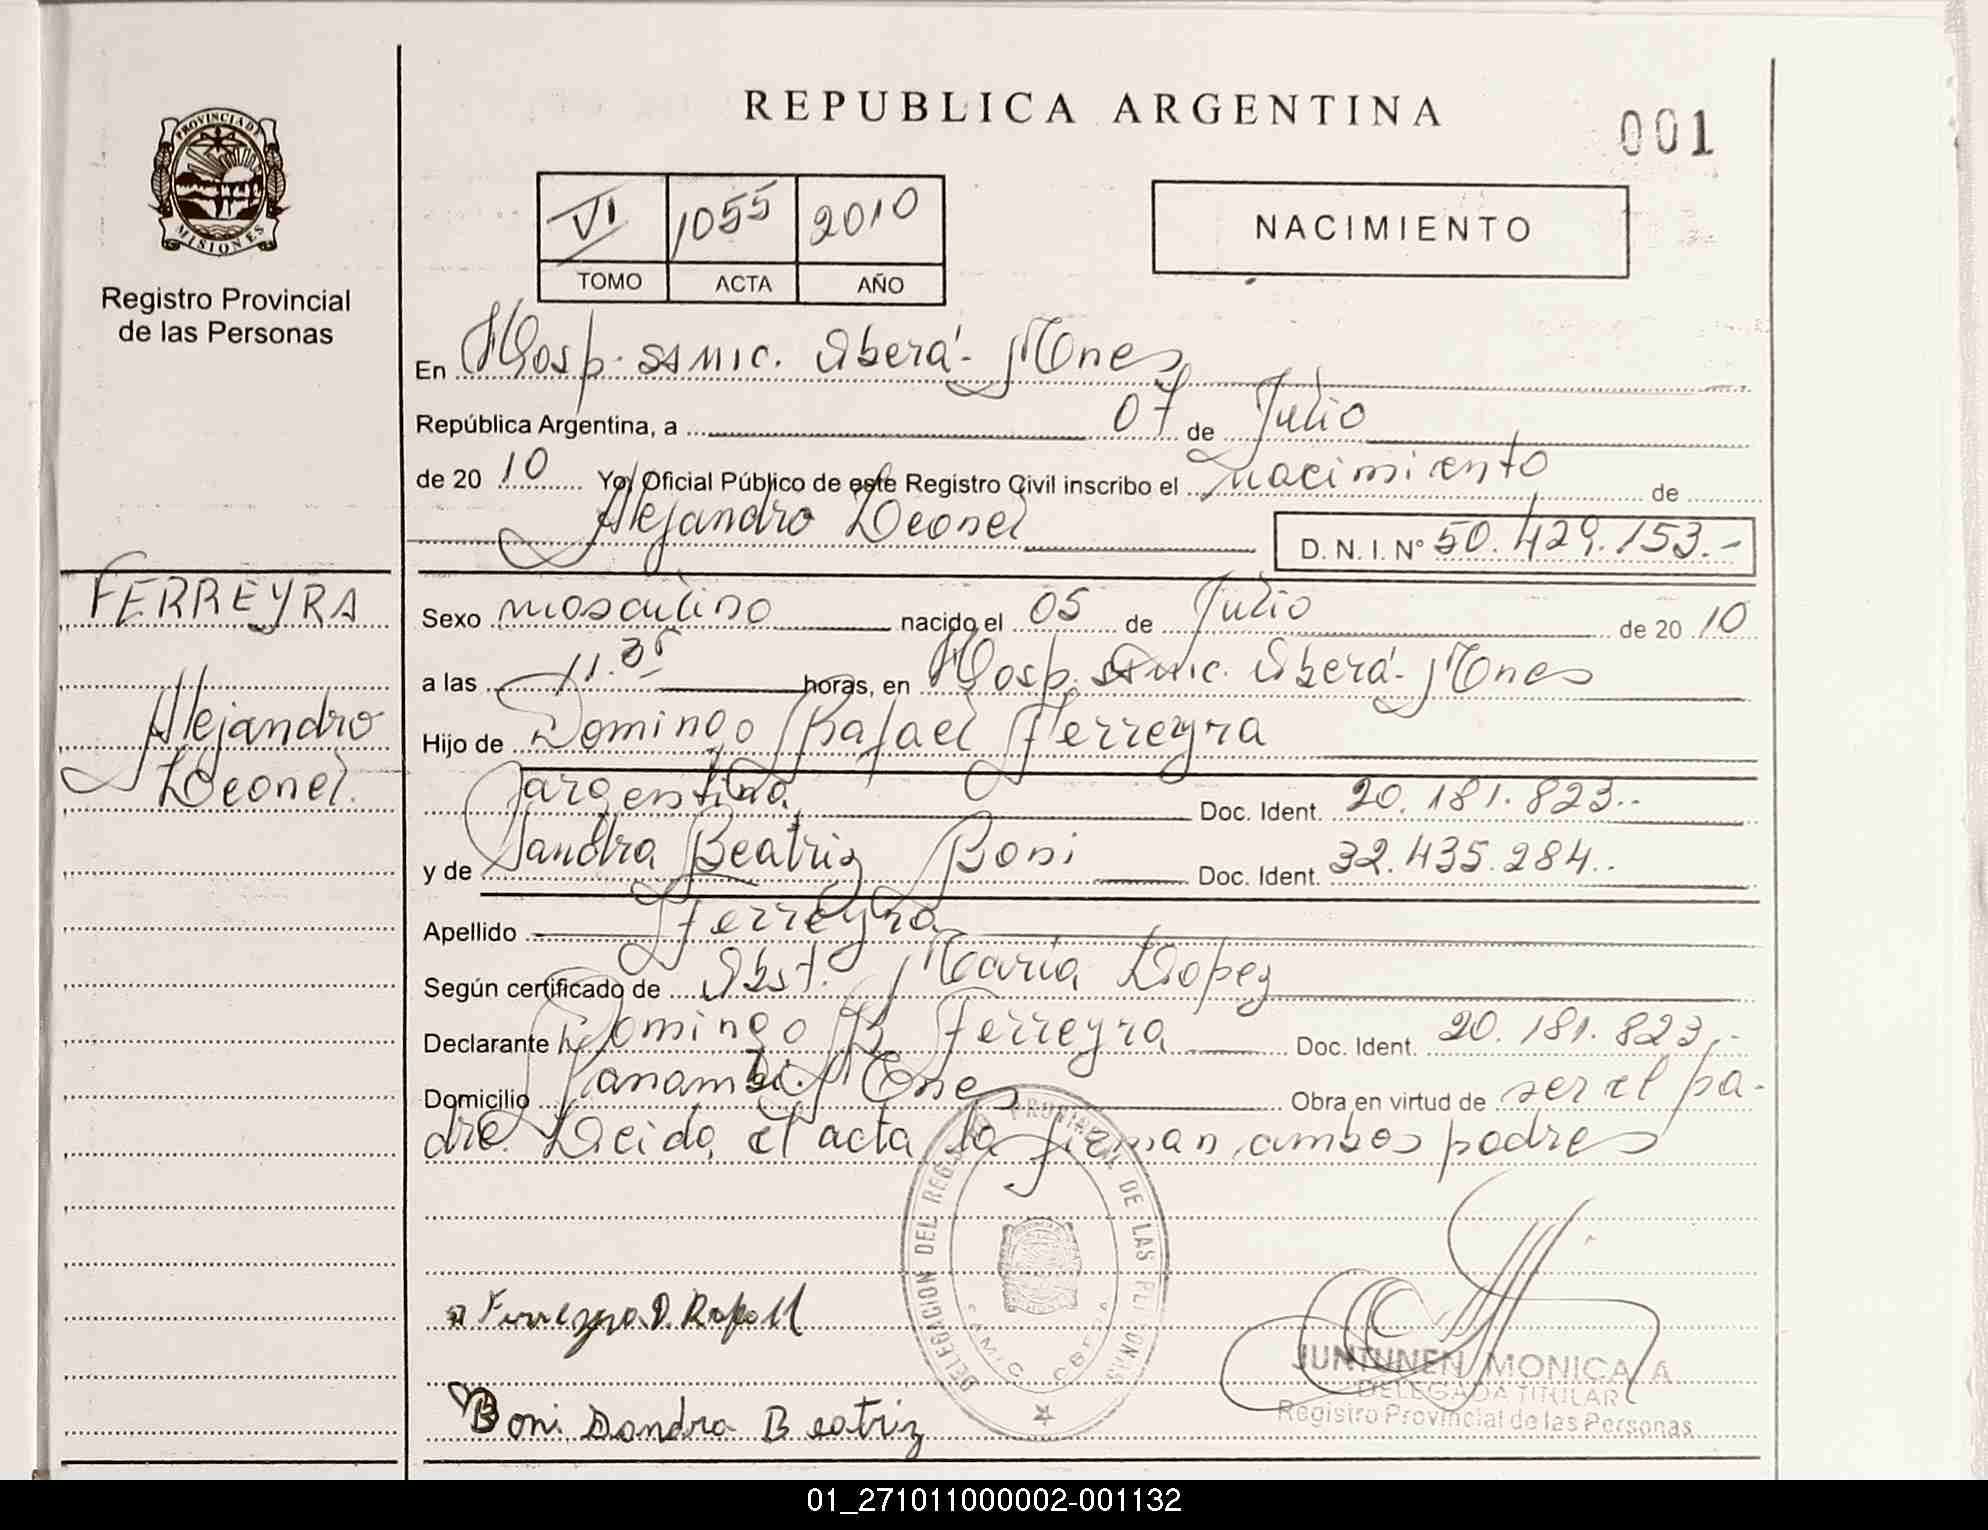 REPUBLICA ARGENTINA
001
PROVINCIA DE
MISIONES
Registro Provincial
de las Personas
VI 1055 2010
TOMO ACTA AÑO
NACIMIENTO
En Hosp. SAMIC. Oberá - Mnes
República Argentina, a 07 de Julio
de 20 10 Yo, Oficial Público de este Registro Civil inscribo el nacimiento de
Alejandro Leonel D. N. I. Nº 50.429.153.-
FERREYRA
Alejandro
Leonel.
Sexo masculino nacido el 05 de Julio de 20 10
a las 11.35 horas, en Hosp. Samic. Oberá - Mnes
Hijo de Domingo Rafael Ferreyra
argentina Doc. Ident. 20.181.823.-
y de Sandra Beatriz Boni Doc. Ident. 32.435.284.-
Apellido Ferreyra
Según certificado de Obst. María Lopez
Declarante Domingo R. Ferreyra Doc. Ident. 20.181.823.-
Domicilio Panambí. Mnes Obra en virtud de ser el pa-
dre. Leido, el acta la firman ambos padres
DELEGACION DEL REGISTRO PROVINCIAL DE LAS PERSONAS
SAMIC OBERA
Ferreyra D. Rafael
Boni Sandra Beatriz
JUNTUNEN MONICA A
DELEGADA TITULAR
Registro Provincial de las Personas
01_271011000002-001132